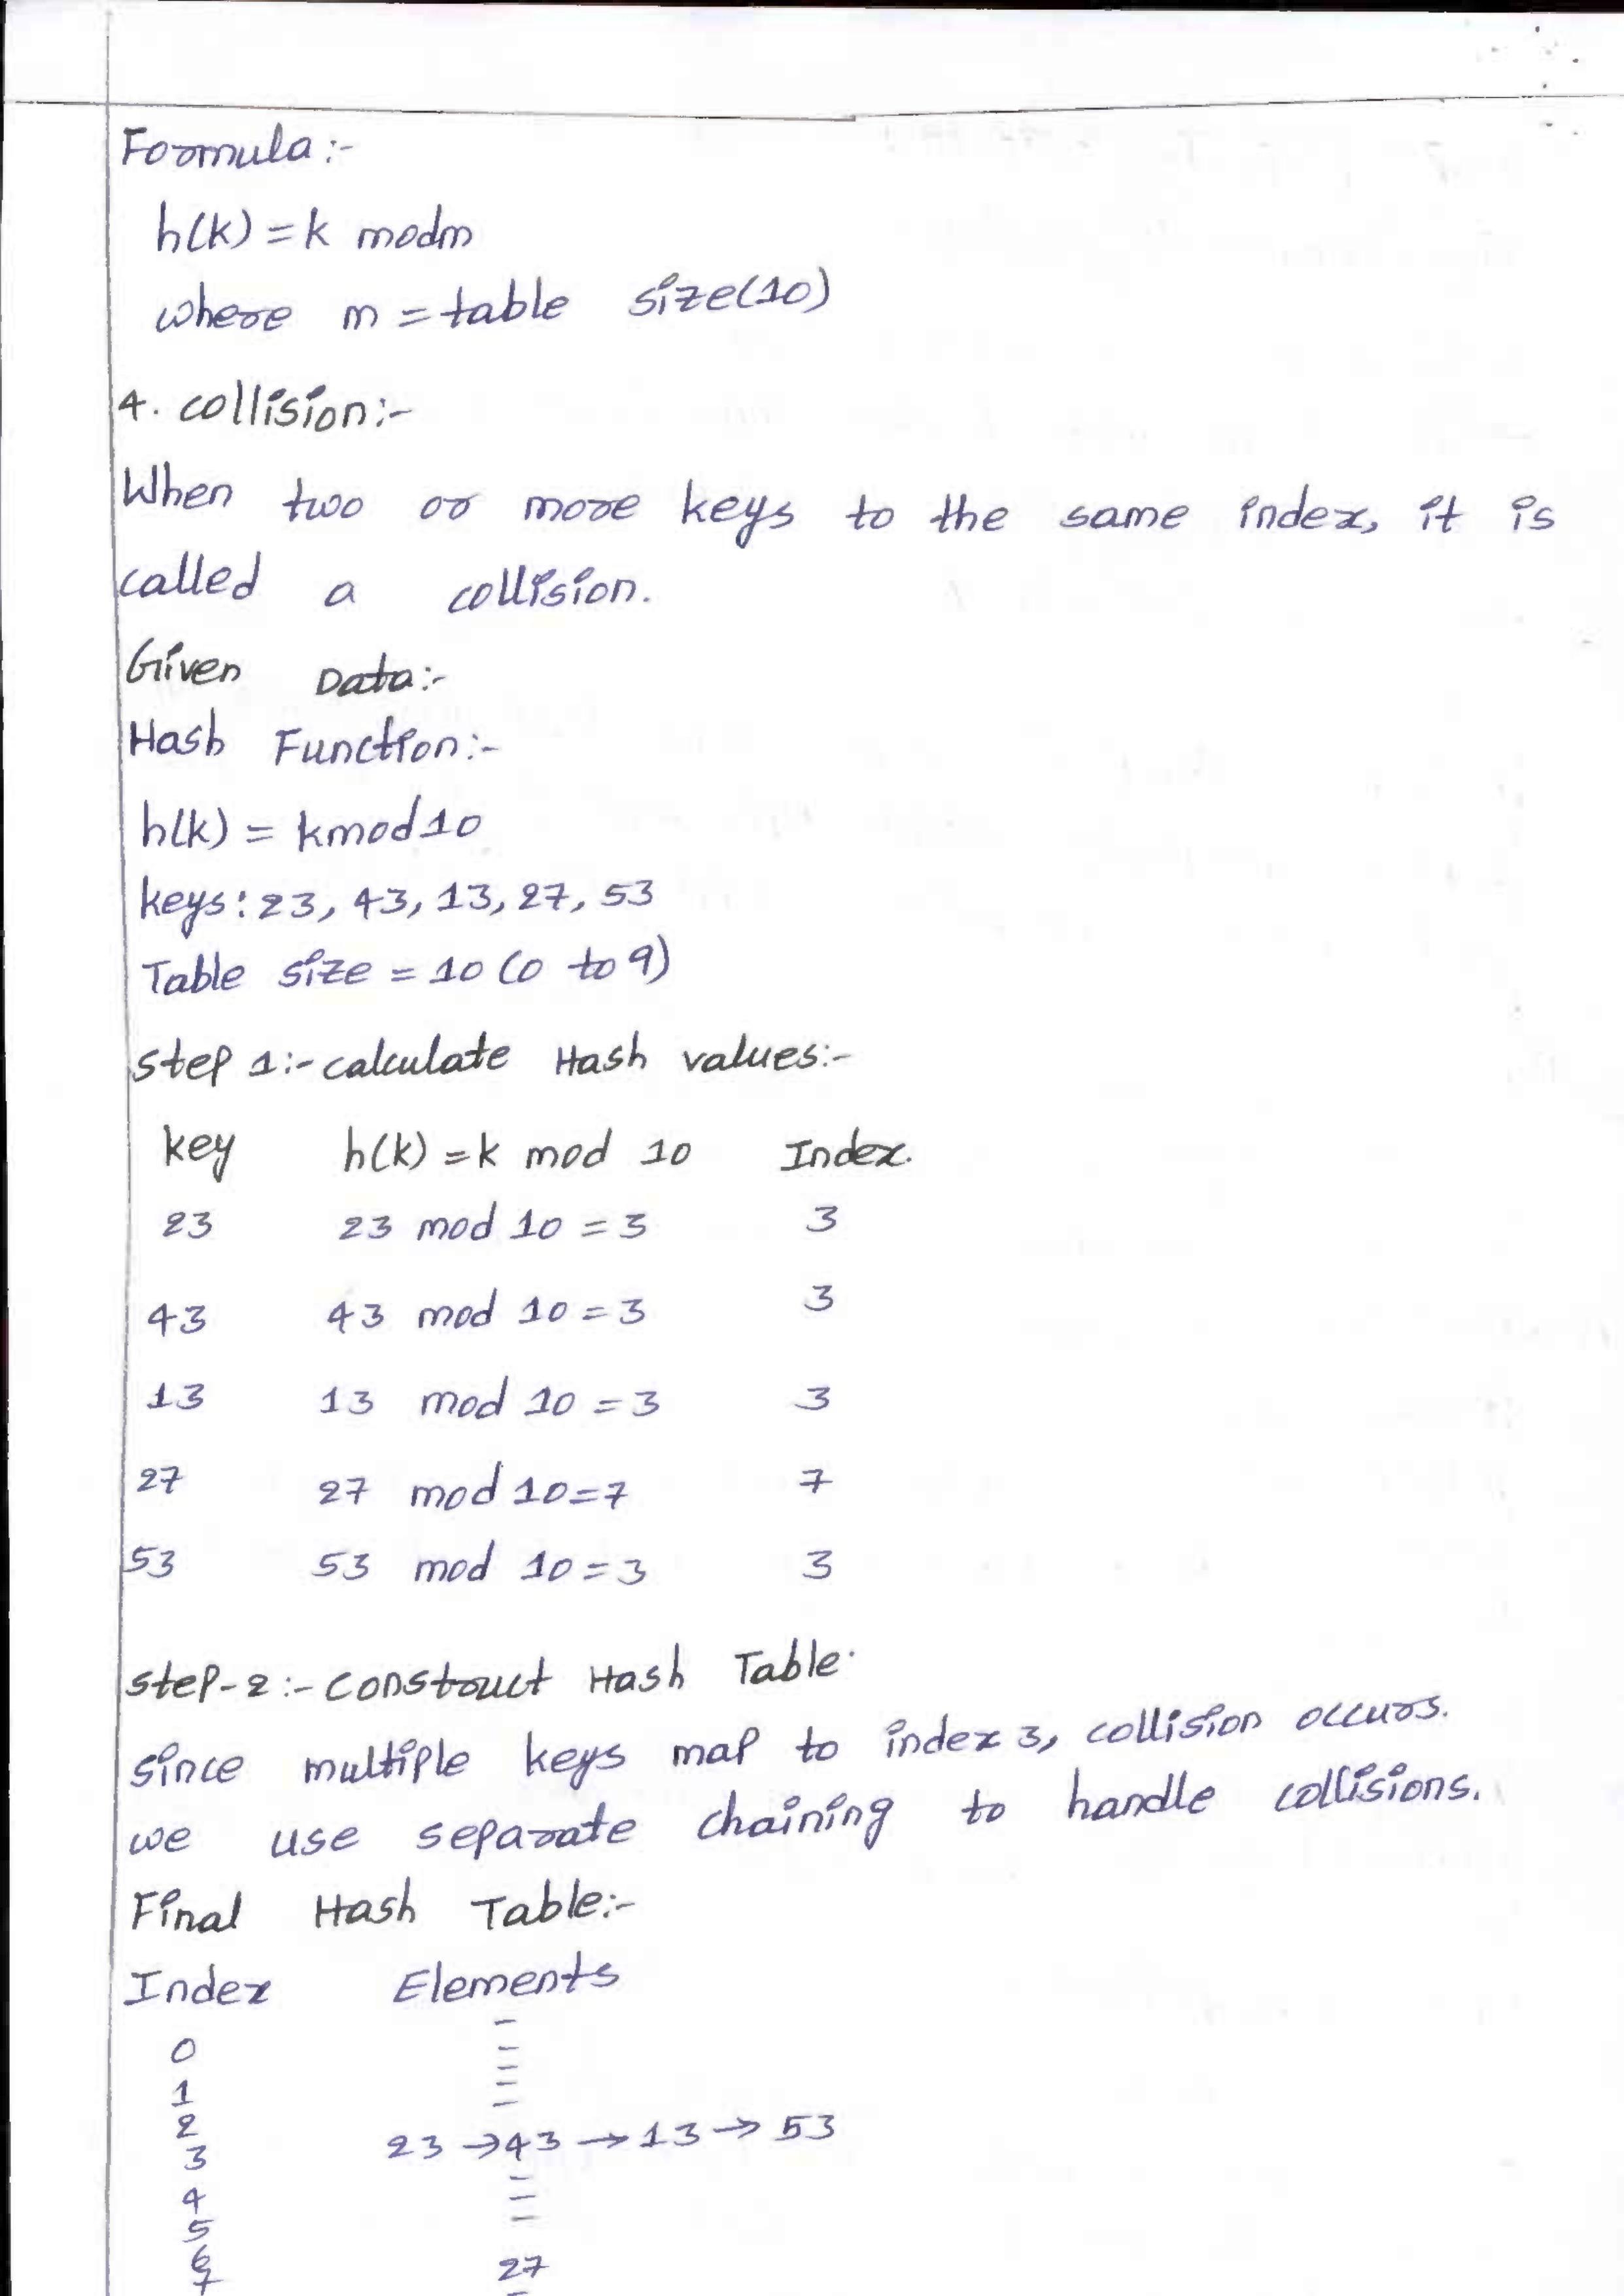 Formula:-
h(k) = k modm
where m = table size(10)
4. collision:-
When two or more keys to the same index, it is
called a collision.
Given Data:-
Hash Function:-
h(k) = kmod10
keys: 23, 43, 13, 27, 53
Table size = 10 (0 to 9)
step 1:- calculate Hash values:-
key h(k) = k mod 10 Index.
23 23 mod 10 = 3 3
43 43 mod 10 = 3 3
13 13 mod 10 = 3 3
27 27 mod 10=7 7
53 53 mod 10 = 3 3
step-2:- construct Hash Table.
since multiple keys map to index 3, collision occurs.
we use separate chaining to handle collisions.
Final Hash Table:-
Index Elements
0 -
1 -
2 -
3 23 → 43 → 13 → 53
4 -
5 -
6 -
7 27